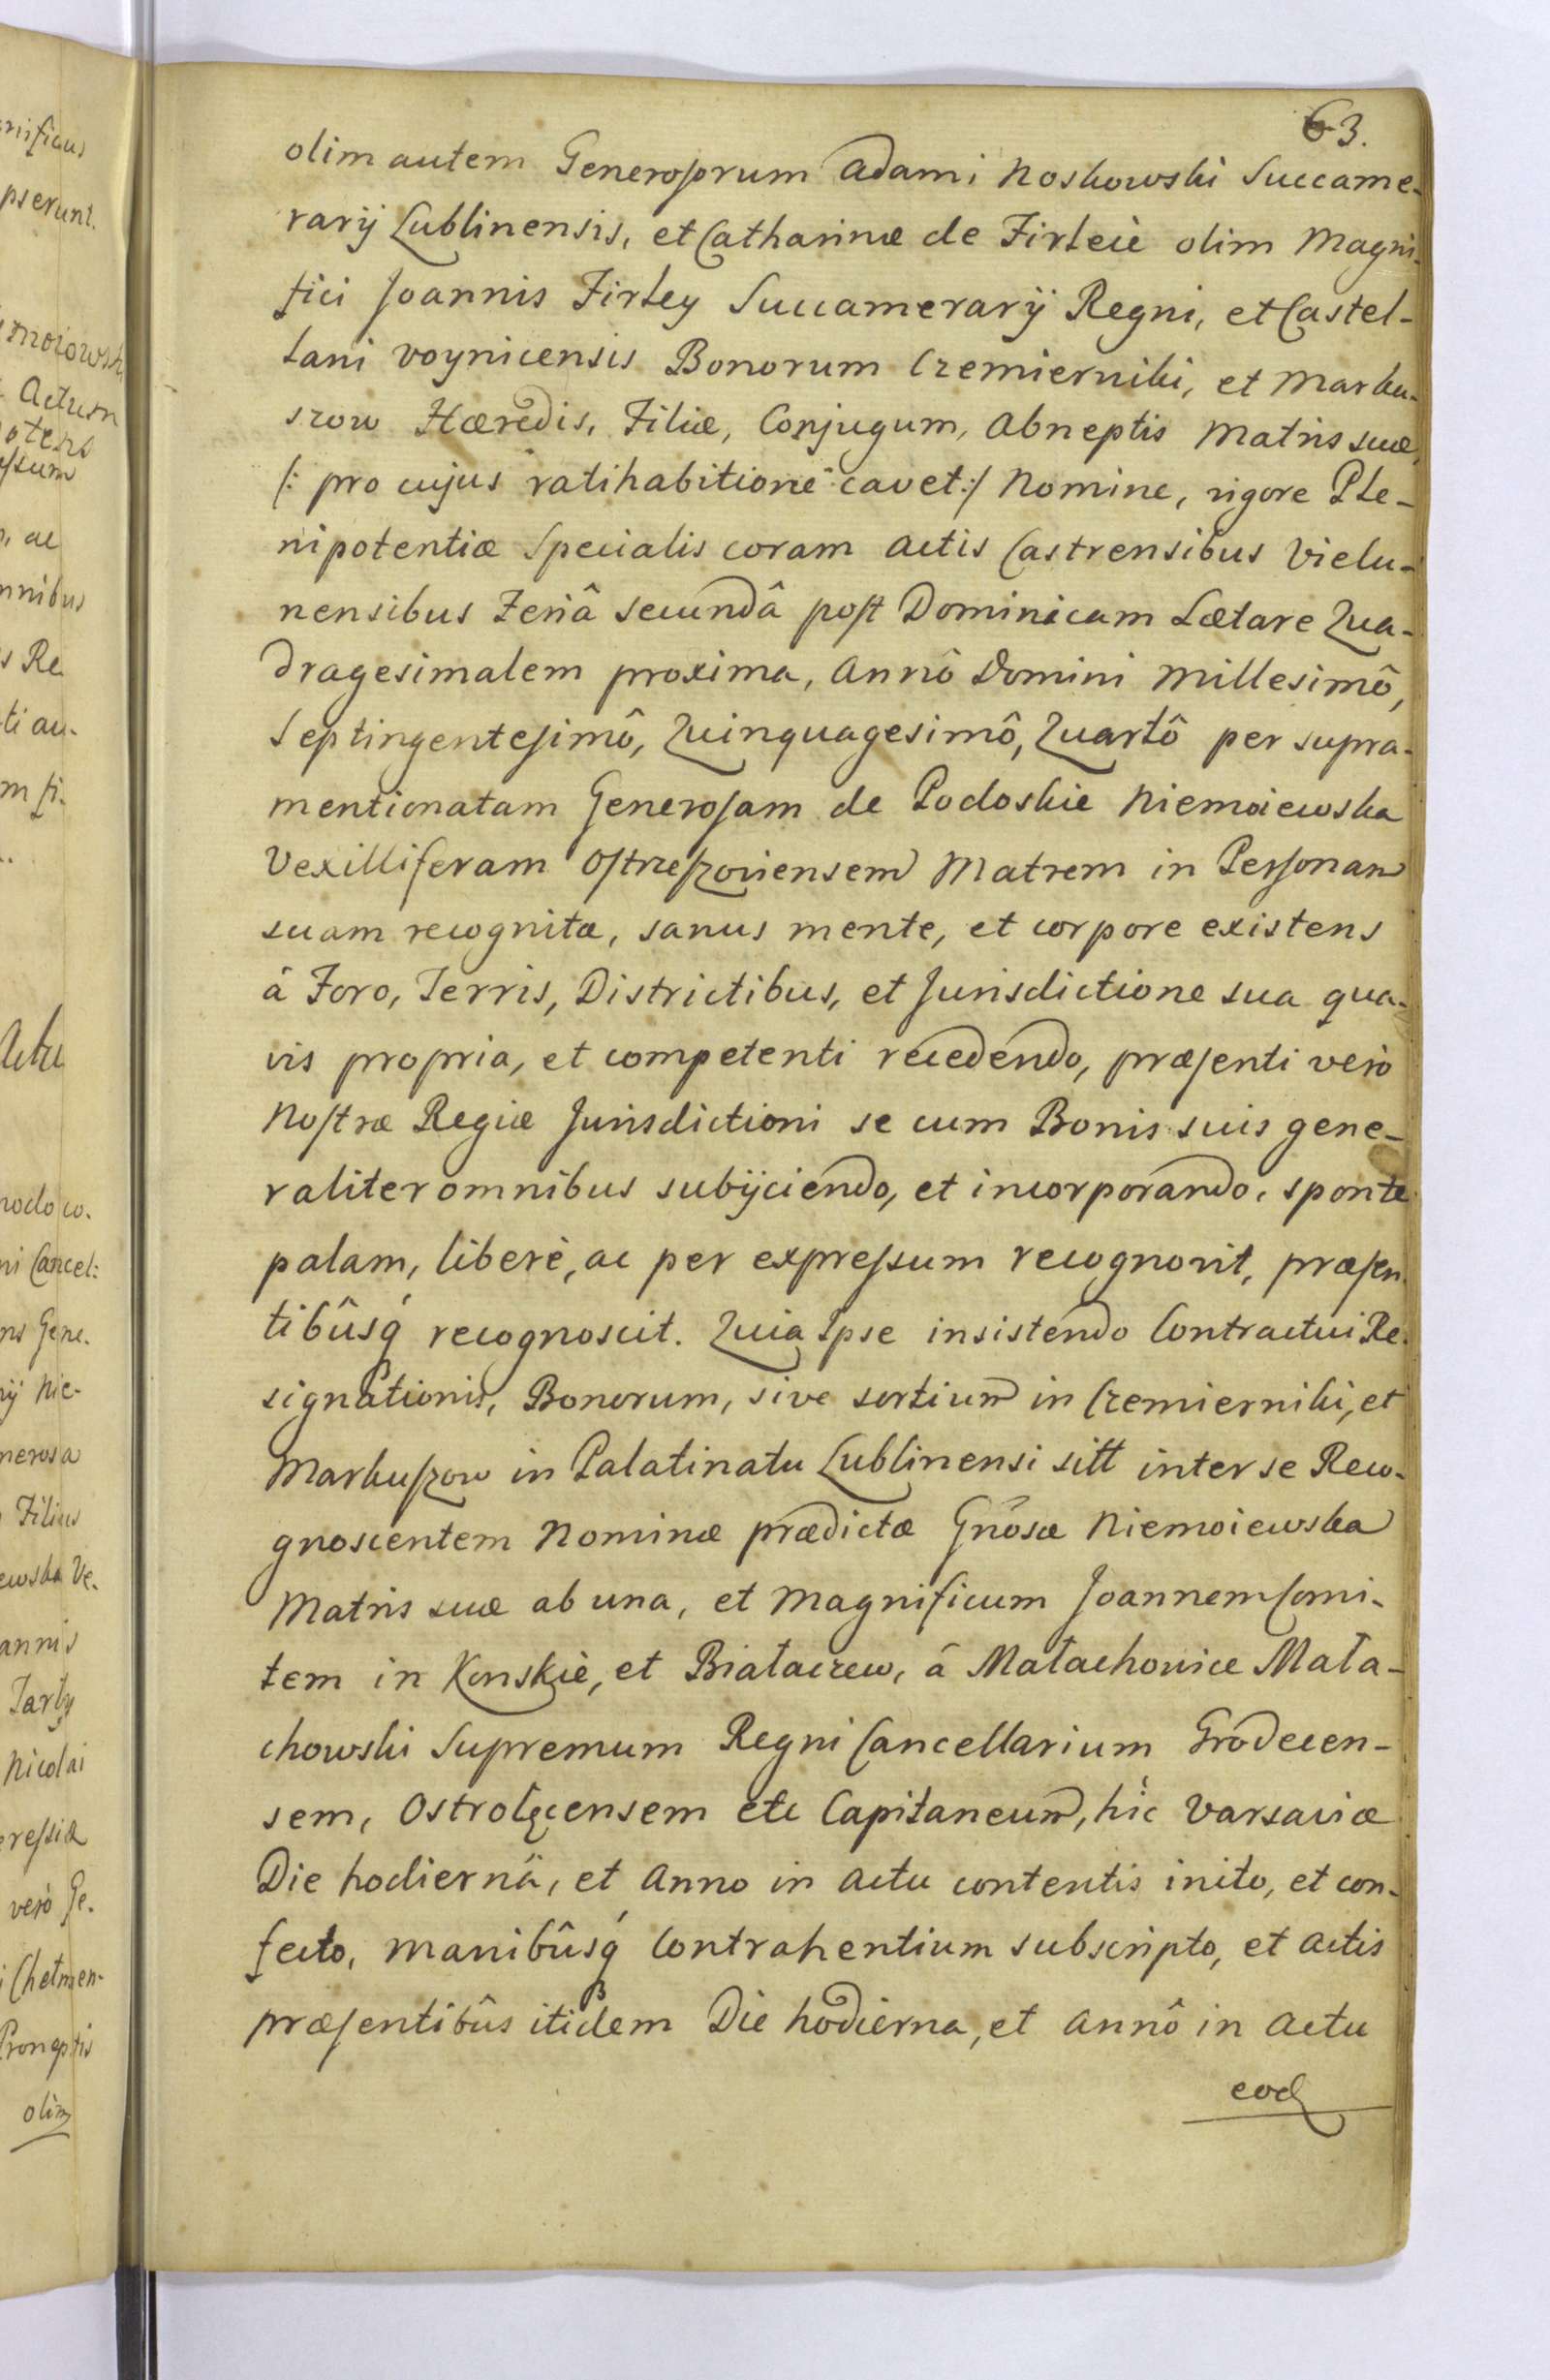 63.
olim autem Generosorum Adami Noskowski Succame-
rarij Lublinensis, et Catharinæ de Firleiè olim Magni-
fici Joannis Firley Succamerarij Regni, et Castel-
lani Voynicensis Bonorum Czemierniki, et Marku-
szow Hæredis, Filiæ, Conjugum, Abneptis Matris suæ,
/: pro cujus ratihabitione cavet :/ Nomine, vigore Ple-
nipotentiæ Specialis coram Actis Castrensibus Vielu-
nensibus Feriâ secundâ post Dominicam Lætare Qua-
dragesimalem proxima, Annô Domini Millesimô,
Septingentesimô, Quinquagesimô, Quartô per supra-
mentionatam Generosam de Podoskie Niemoiewska
Vexilliferam Ostrzeszoviensem Matrem in Personam
suam recognitæ, sanus mente, et corpore existens
â Foro, Terris, Districtibus, et Jurisdictione sua qua-
vis propria, et competenti recedendo, præsenti verò
Nostræ Regiæ Jurisdictioni se cum Bonis suis gene-
raliter omnibus subijciendo, et incorporando, sponte
palam, liberè, ac per expressum recognovit, præsen-
tibûsq́ recognoscit. Quia Ipse insistendo Contractui Re-
signationis, Bonorum, sive sortium in Czemierniki, et
Markuszow in Palatinatu Lublinensi sitt inter se Reco-
gnoscentem Nominæ prædictæ Gnosæ Niemoiewska
Matris suæ ab una, et Magnificum Joannem Comi-
tem in Konskiè, et Białaczew, â Małachowice Mała-
chowski Supremum Regni Cancellarium Grodecen-
sem, Ostrołęcensem etc Capitaneum, hîc Varsaviæ
Die hodiernâ, et Anno in Actu contentis inito, et con-
fecto, manibûsq́ Contrahentium subscripto, et Actis
præsentibûs itidem Die hodierna, et Annô in Actu
eod